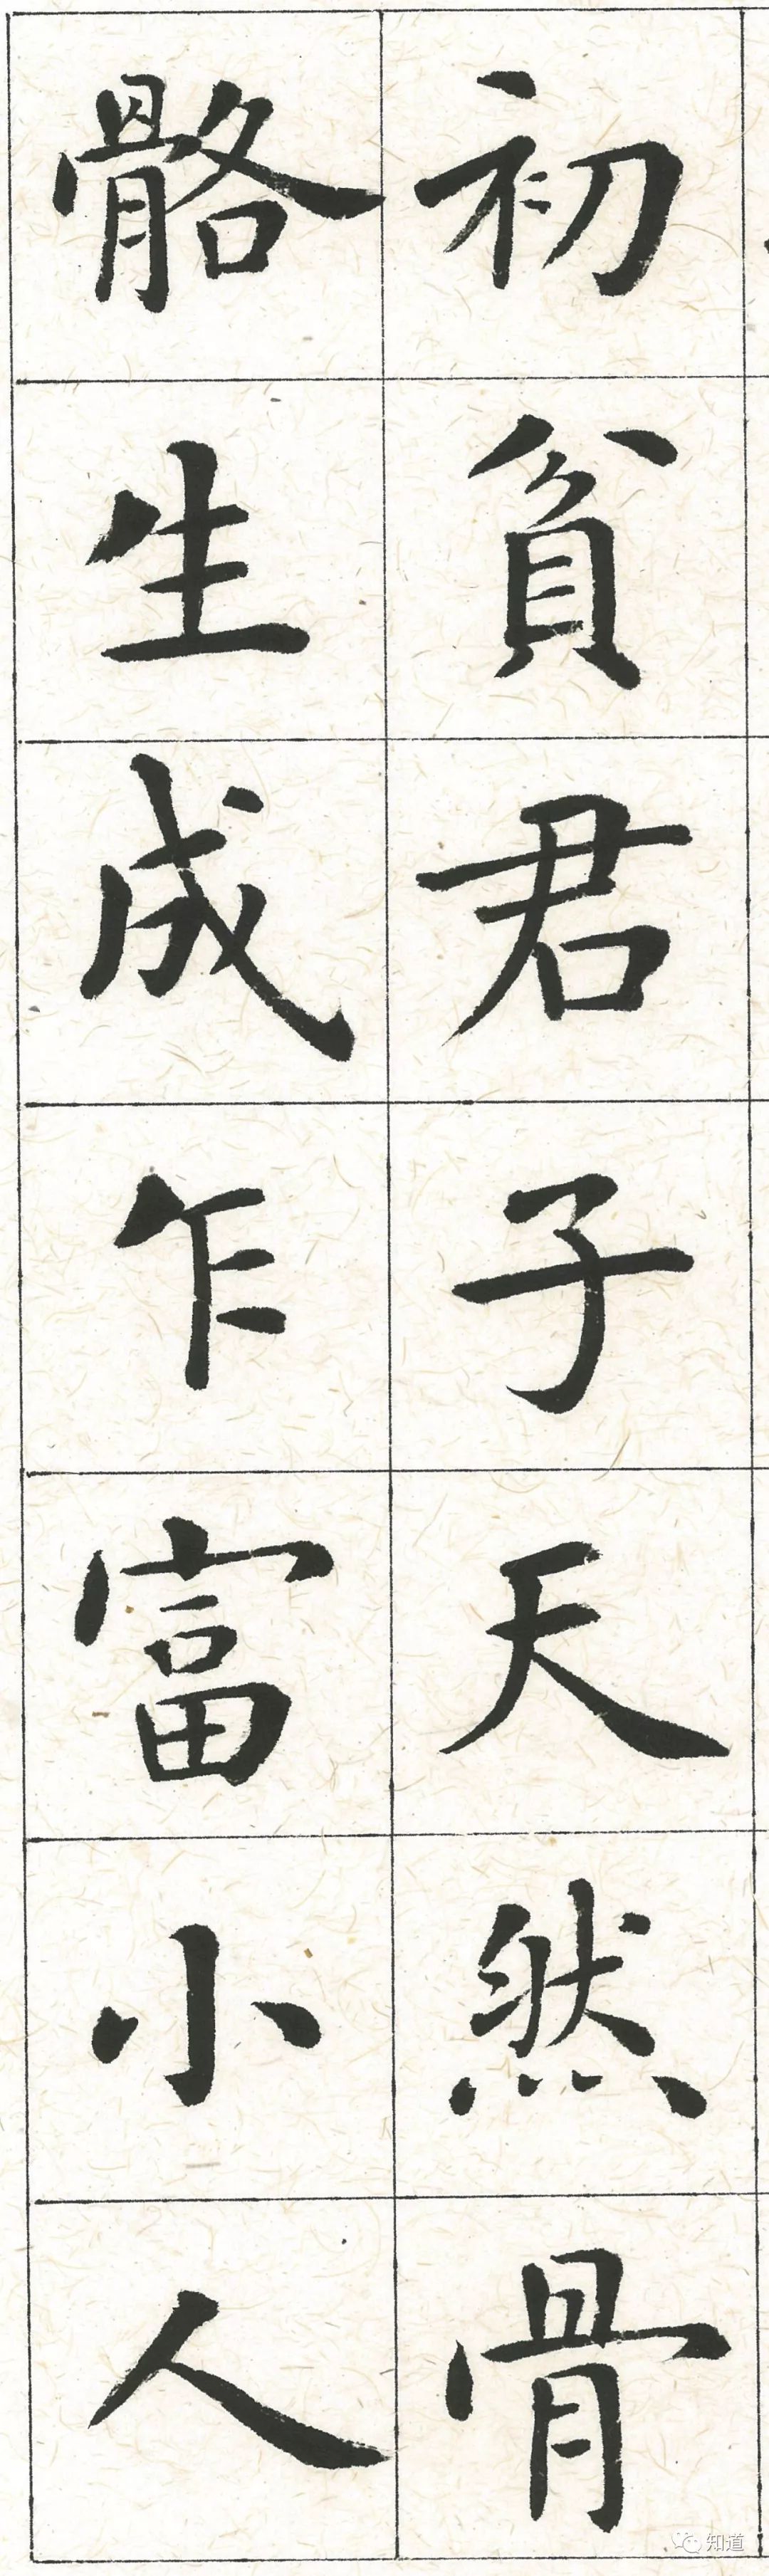 初貧君子天然骨
骼生成乍富小人
知道